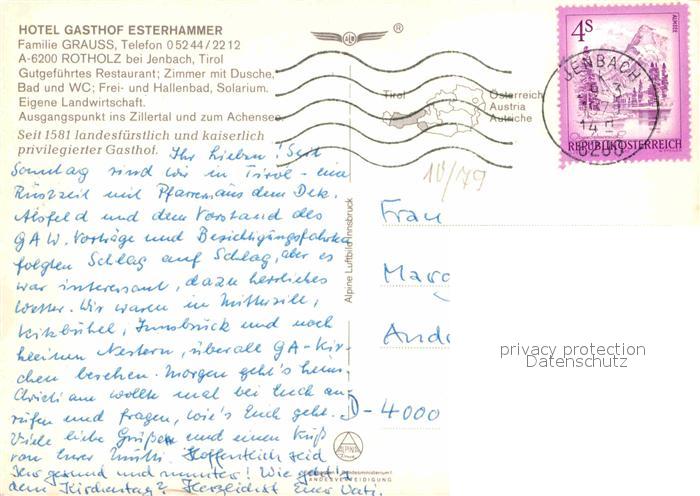 HOTEL GASTHOF ESTERHAMMER
Familie GRAUSS, Telefon 05244/2212
A-6200 ROTHOLZ bei Jenbach, Tirol
Gutgeführtes Restaurant; Zimmer mit Dusche,
Bad und WC; Frei- und Hallenbad, Solarium.
Eigene Landwirtschaft.
Ausgangspunkt ins Zillertal und zum Achensee.
Seit 1581 landesfürstlich und kaiserlich
privilegierter Gasthof.
Ihr Lieben! Seit
Sonntag sind wir in Tirol - eine
Rüstzeit mit Pfarrern aus dem Dek.
Alsfeld und dem Vorstand des
GAW. Vorträge und Besichtigungsfahrten
folgten Schlag auf Schlag, aber es
war interessant, dazu herrliches
Wetter. Wir waren in Mittersill,
Kitzbühel, Innsbruck und noch
kleinen Nestern, überall GA-Kir-
chen besehen. Morgen geht's heim.
Christian wollte mal bei Euch an-
rufen und fragen, wie's Euch geht.
Viele liebe Grüße und einen Kuß
von Eurer Mutti. Hoffentlich seid
Ihr gesund und munter! Wie geht's
dem Kirchentag? Herzlichst Euer Vati.
Alpine Luftbild Innsbruck
ALPINE
LANDESVERTEIDIGUNG
®
Tirol
Österreich
Austria
Autriche
10/79
4S
ALMSEE
REPUBLIK ÖSTERREICH
JENBACH
6200
Frau
Marg
Andr
D-4000
privacy protection
Datenschutz